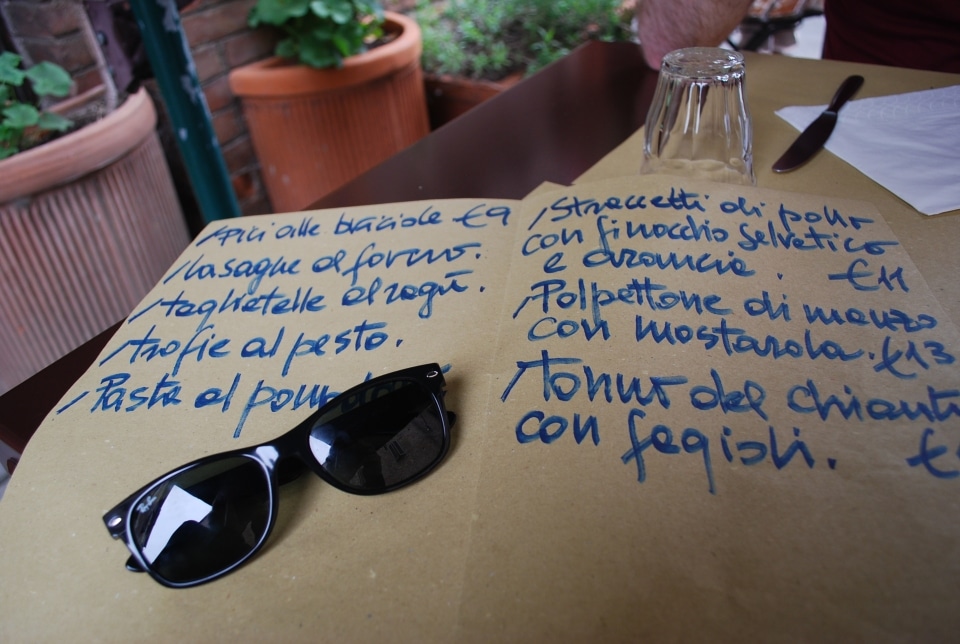 /Pici alle briciole €9
/lasagne al forno.
/tagliatelle al ragù.
/trofie al pesto.
/Pasta al
/Straccetti di pollo
con finocchio selvatico
e arancia. €11
/Polpettone di manzo
con mostarda. €13
/Tonno del chianti
con fagioli. €
Ray-Ban